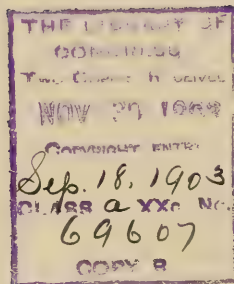 THE LIBRARY OF
CONGRESS
Two Copies Received
NOV 20 1903
COPYRIGHT ENTRY
Sep. 18, 1903
CLASS a XXc. No.
69607
COPY B